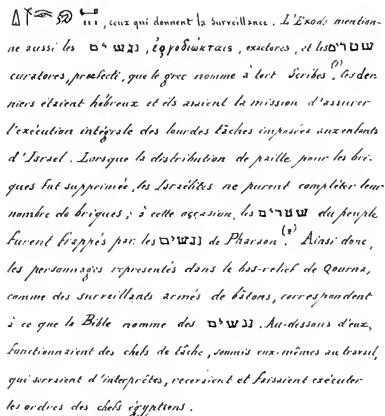 , ceux qui donnent la surveillance. L'Exode mention-
ne aussi les נגשים, ἐργοδιώκταις, exactores, et les שטרים
curatores, præfecti, que le grec nomme à tort Scribes (1), les der-
niers étaient hébreux et ils avaient la mission d'assurer
l'exécution intégrale des lourdes tâches imposées aux enfants
d'Israel. Lorsque la distribution de paille pour les bri-
ques fut supprimée, les Israélites ne purent compléter leur
nombre de briques; à cette occasion, les שטרים du peuple
furent frappés par les נגשים de Pharaon (2). Ainsi donc,
les personnages représentés dans le bas-relief de Qourna,
comme des surveillants armés de bâtons, correspondent
à ce que la Bible nomme des נגשים. Au-dessous d'eux,
fonctionnaient des chefs de tâche, soumis eux-mêmes au travail,
qui servaient d'interprètes, recevaient et faisaient exécuter
les ordres des chefs égyptiens.